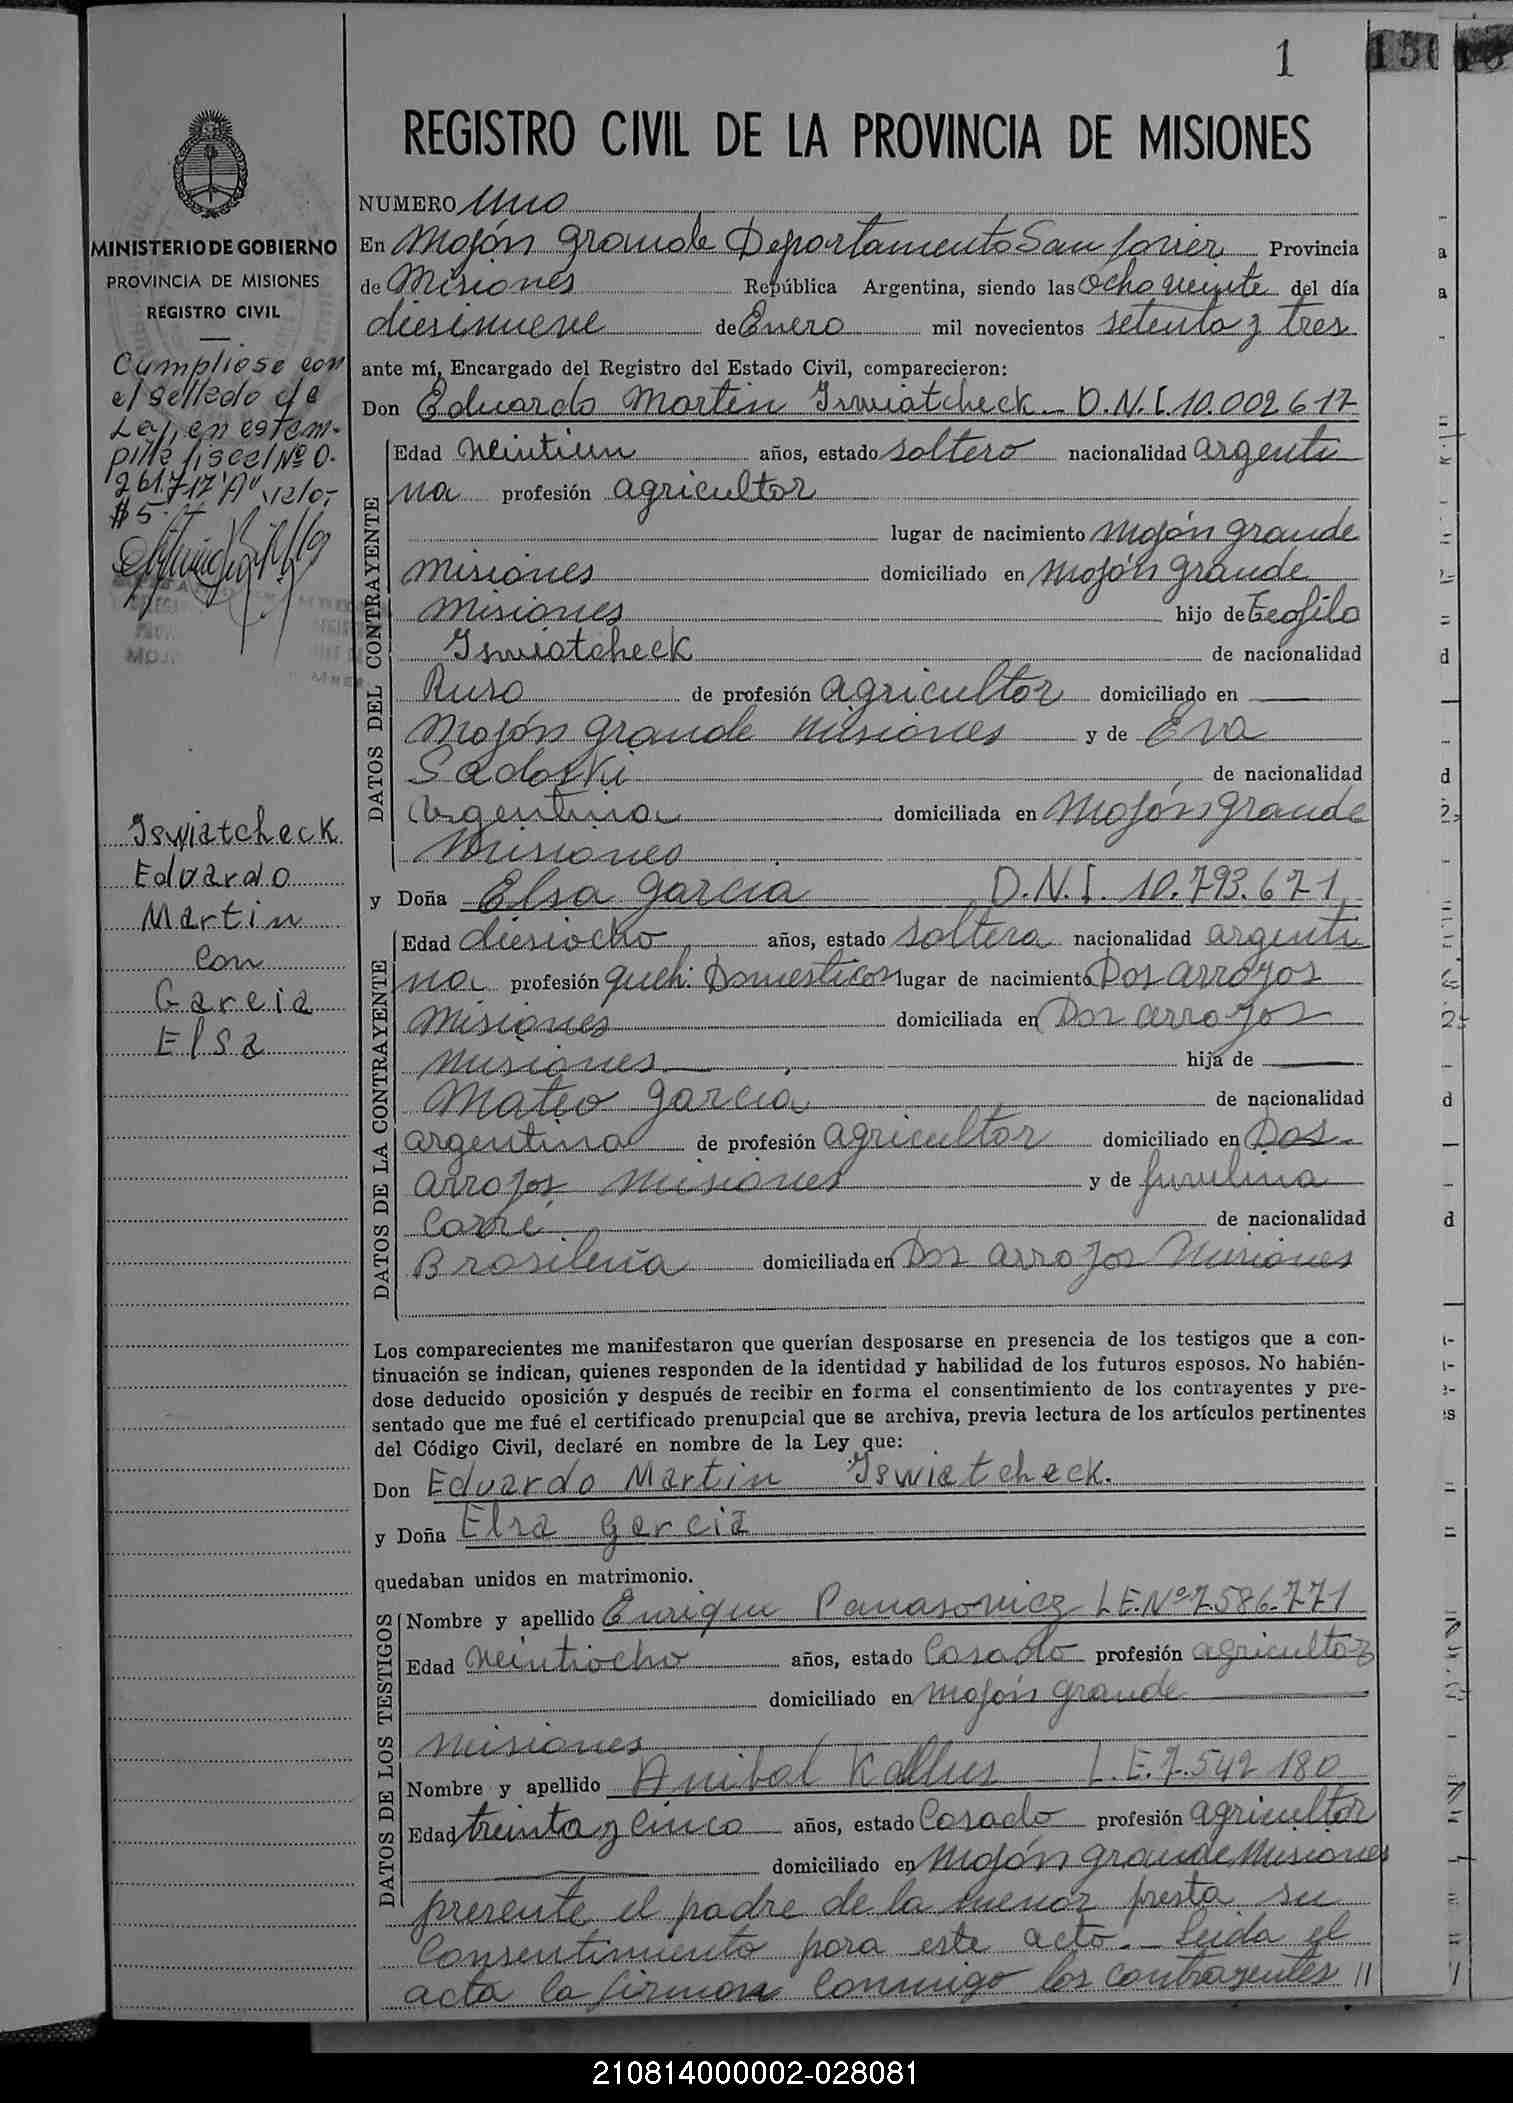 1
REGISTRO CIVIL DE LA PROVINCIA DE MISIONES
NUMERO Uno
En Mojón Grande Departamento San Javier Provincia
de Misiones República Argentina, siendo las Ocho veinte del día
diesinueve de Enero mil novecientos setenta y tres
ante mí, Encargado del Registro del Estado Civil, comparecieron:
Don Eduardo Martin Iswiatcheck D.N.I. 10.002.617
DATOS DEL CONTRAYENTE
Edad veintiun años, estado soltero nacionalidad argenti
na profesión agricultor
lugar de nacimiento Mojón grande
Misiones domiciliado en Mojón Grande
Misiones hijo de Teofilo
Iswiatcheck de nacionalidad
Ruso de profesión agricultor domiciliado en
Mojón grande Misiones y de Eva
Sadoski de nacionalidad
argentina domiciliada en Mojón grande
Misiones
y Doña Elsa Garcia D.N.I. 10.793.671
DATOS DE LA CONTRAYENTE
Edad diesiocho años, estado soltera nacionalidad argenti
na profesión queh. Domesticos lugar de nacimiento Dos arroyos
Misiones domiciliada en Dos arroyos
Misiones hija de
Mateo Garcia de nacionalidad
argentina de profesión agricultor domiciliado en Dos
arroyos Misiones y de
Corré de nacionalidad
Brasileña domiciliada en Dos arroyos Misiones
Los comparecientes me manifestaron que querían desposarse en presencia de los testigos que a con-
tinuación se indican, quienes responden de la identidad y habilidad de los futuros esposos. No habién-
dose deducido oposición y después de recibir en forma el consentimiento de los contrayentes y pre-
sentado que me fué el certificado prenupcial que se archiva, previa lectura de los artículos pertinentes
del Código Civil, declaré en nombre de la Ley que:
Don Eduardo Martin Iswiatcheck.
y Doña Elsa Garcia
quedaban unidos en matrimonio.
DATOS DE LOS TESTIGOS
Nombre y apellido Enrique Panasowicz L.E.Nº 7.586.771
Edad veintiocho años, estado Casado profesión agricultor
domiciliado en Mojón grande
Misiones
Nombre y apellido Anibal Kallus L.E. 7.542.180
Edad treinta y cinco años, estado Casado profesión agricultor
domiciliado en Mojón grande Misiones
presente el padre de la menor presta su
Consentimiento para este acto. Leida el
acta la firman conmigo los contrayentes //
MINISTERIO DE GOBIERNO
PROVINCIA DE MISIONES
REGISTRO CIVIL
Cumpliose con
el sellado de
Ley, en estam-
pilla fiscal Nº 0.
261.717 "A"
$ 5.
Iswiatcheck
Eduardo
Martin
con
Garcia
Elsa
210814000002-028081